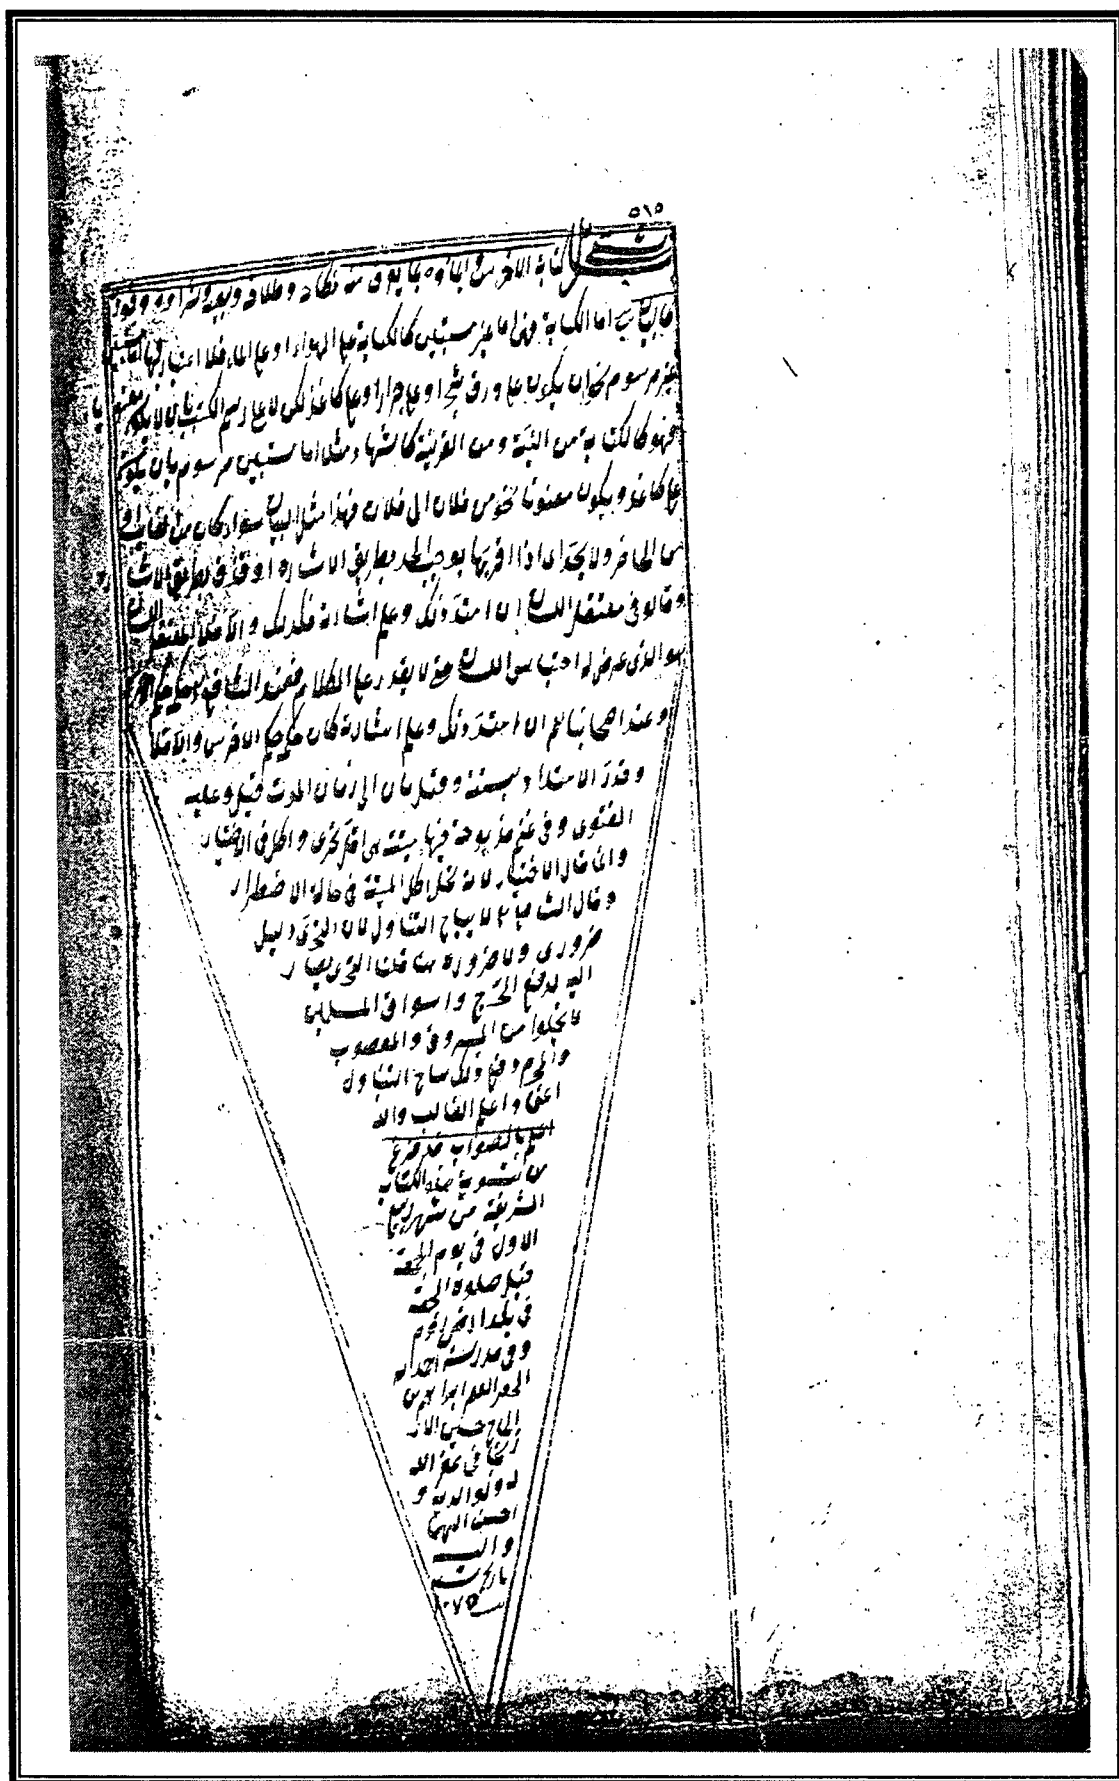 ٥١٥
مسائل شتى كتابة الاخرس وايماؤه بما يعرف منه نكاحه وطلاقه وبيعه وشراؤه وقوده
كالبيان اما الكتابة فهى اما غير مستبين كالكتابة على الهواء او على الماء فلا اعتبار فيها
غير مرسوم نحو ان يكون على ورق شجر او على جدار او على كاغذ لكن لا على رسم الكتب بان لا يكون معنونا
فهو كالكتابة من النية ومن القرينة كالاشهاد مثلا اما مستبين مرسوم بان يكون
على كاغذ ويكون معنونا نحو من فلان الى فلان فهذا مثل البيان سواء كان من الغايب او
من الحاضر ولا يحد اى اذا اقر بما يوجب الحد بطريق الاشارة او قذف بطريق الاشارة
وقالوا فى معتقل اللسان ان امتد ذلك وعلم اشارته فكذلك والا فلا المعتقل
هو الذى عرض له احتباس اللسان حتى لا يقدر على الكلام فعند الشافعى حكمه حكم الاخرس
وعند اصحابنا ان امتد ذلك وعلم اشارته كان حكمه حكم الاخرس والا فلا
وقدر الامتداد بسنة وقيل بان الى زمان الموت قيل وعليه
الفتوى وفى غنم مذبوحة فيها ميتة هى اقل تحرى واكل فى الاختيار
وانما قال الاختيار لانه يحل اكل الميتة فى حالة الاضطرار
وقال الشافعى لا يباح التناول لان التحرى دليل
ضرورى ولا ضرورة هنا قلنا التحرى يصار
اليه لدفع الحرج واسواق المسلمين
لا يخلوا من المسروق والمغصوب
والمحرم ومع ذلك يباح التناول
اعتمادا على الغالب والله
اعلم بالصواب قد فرغ
من تسويد هذه الكتاب
الشريفة من شهر ربيع
الاول فى يوم الجمعة
قبل صلوة الجمعة
فى بلدة
وفى مدرسة احمد
ابراهيم بن
الحاج حسين
غفر الله
له ولوالديه و
احسن اليهما
واليه
تاريخ سنه
١٠٧٥